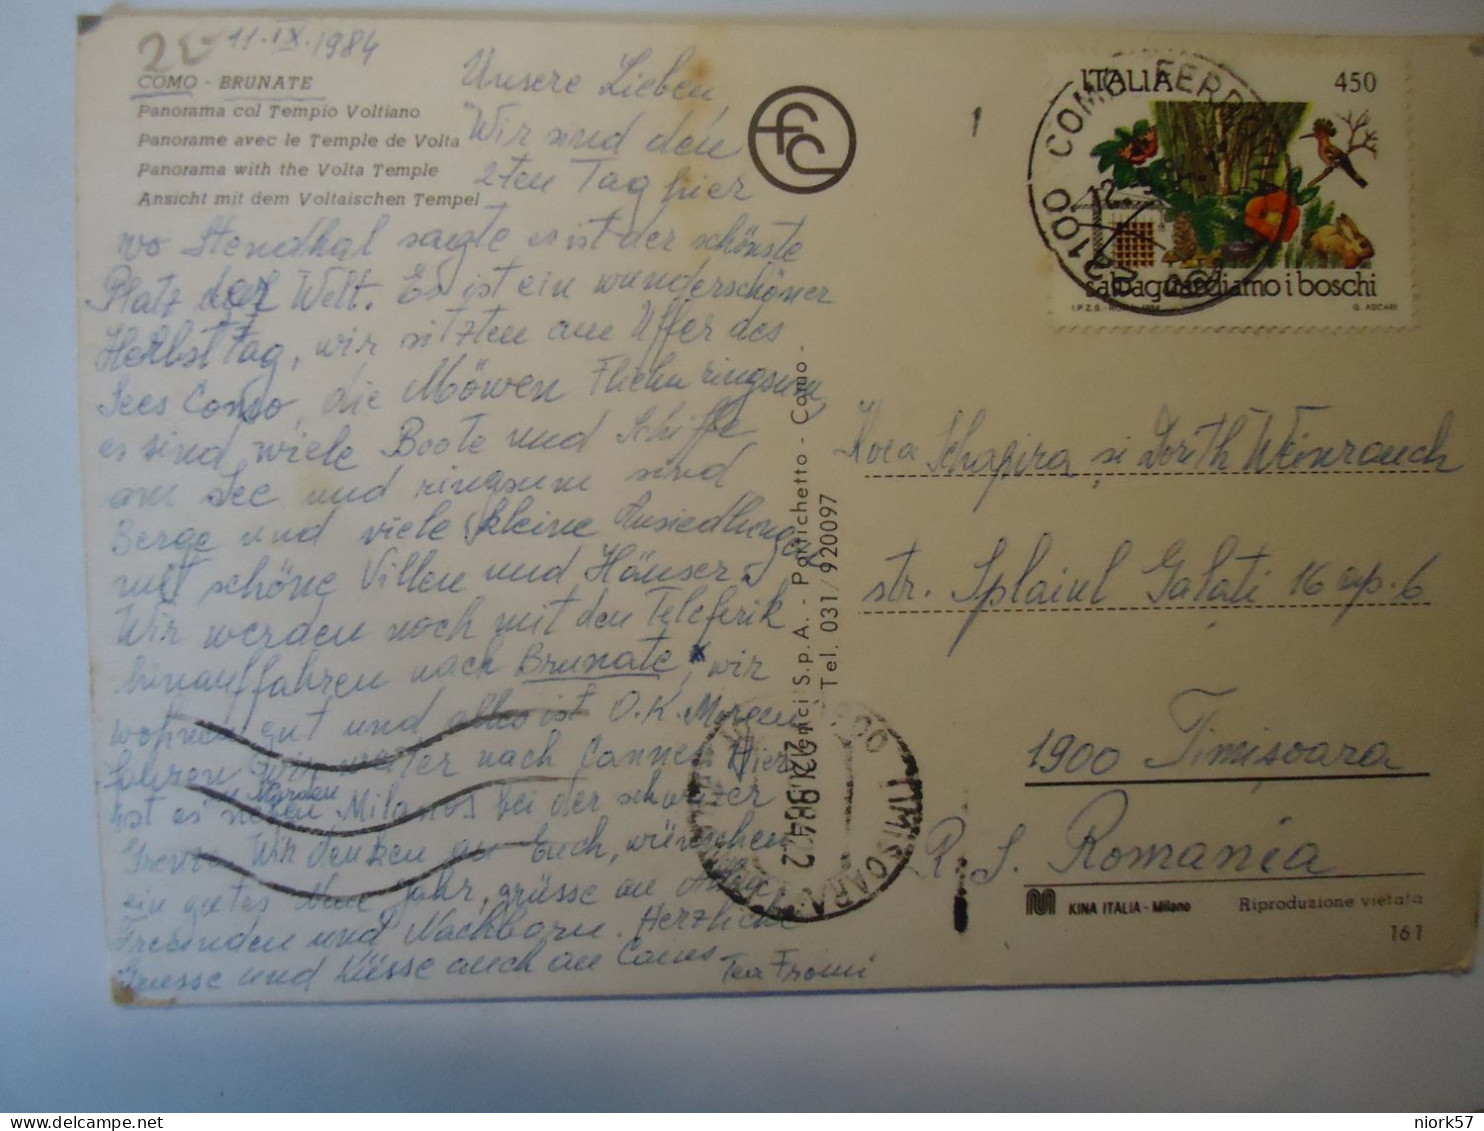 11.IX.1984
COMO - BRUNATE
Panorama col Tempio Voltiano
Panorame avec le Temple de Volta
Panorama with the Volta Temple
Ansicht mit dem Voltaischen Tempel
Unsere Lieben,
Wir sind den
2ten Tag hier
wo Stendhal sagte es ist der schönste
Platz der Welt. Es ist ein wunderschöner
Herbsttag, wir sitzten am Uffer des
Sees Como, die Möwen fliehn ringsum,
es sind viele Boote und Schiffe
am See und ringsum sind
Berge und viele kleine Ansiedlungen
mit schöne Villen und Häuser.
Wir werden noch mit den Teleferik
hinauffahren nach Brunate, wir
wohnen gut und alles ist O.K. Morgen
fahren wir weiter nach Cannes. Hier
ist es Norden Milanos bei der schweizer
Grenze. Wir denken an Euch, wünschen
ein gutes Neue Jahr, grüsse an
Freunden und Nachborn. Herzliche
Gruesse und Küsse auch an
Tea Fromi
FCC
ITALIA 450
salvaguardiamo i boschi
I.P.Z.S. - ROMA - 1984 G. ASCARI
22100 COMO FERROVIA
12.
Portichetto - Como -
S.p.A. - Tel. 031/920097
Schapira și Dorith Weinrauch
str. Splaiul Galați 16 ap. 6
1900 Timișoara
R. S. Romania
TIMISOARA
12.9.84.22
KINA ITALIA - Milano
Riproduzione vietata
161
niork57